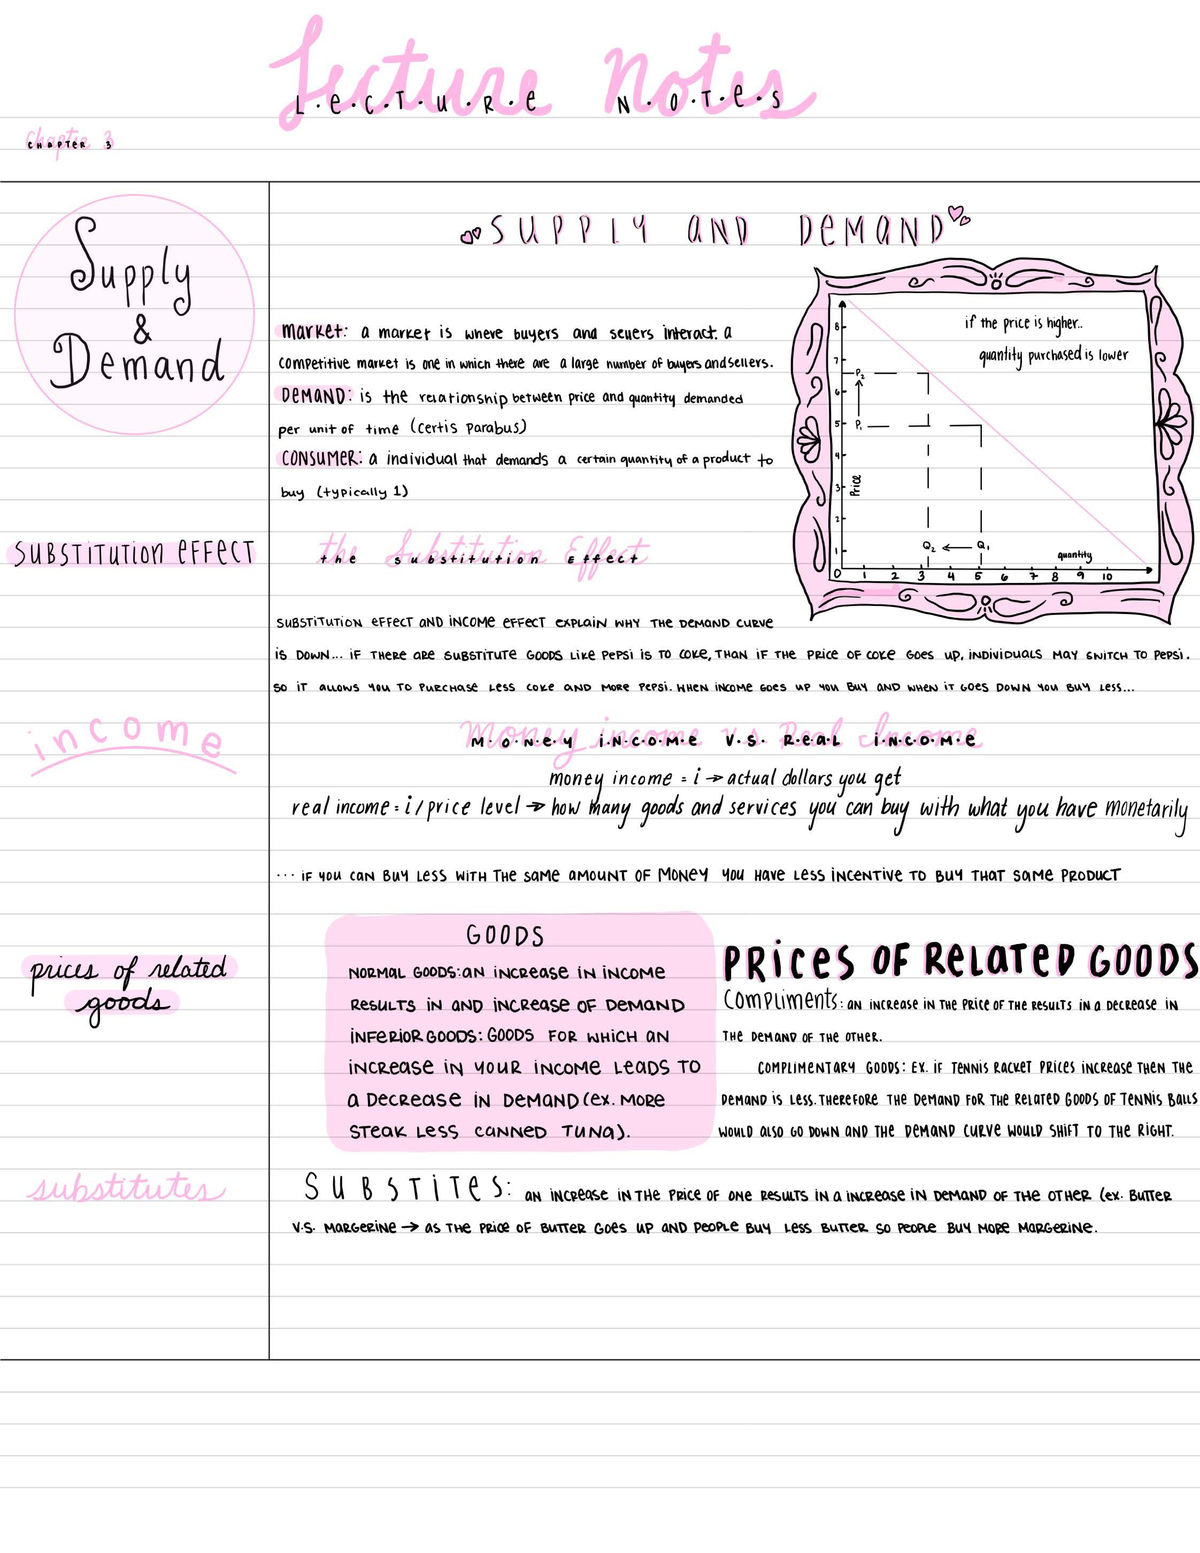 Lecture Notes
L·e·C·T·U·R·e N·O·T·e·S
Chapter 3
CHAPTER 3
Supply
&
Demand
SUPPLY AND DEMAND
market: a market is where buyers and sellers interact. a
competitive market is one in which there are a large number of buyers and sellers.
DEMAND: is the relationship between price and quantity demanded
per unit of time (certis parabus)
CONSUMER: a individual that demands a certain quantity of a product to
buy (typically 1)
if the price is higher..
quantity purchased is lower
8
7
P2
6
5
P1
4
3
Price
2
1
Q2
Q1
quantity
0 1 2 3 4 5 6 7 8 9 10
SUBSTITUTION EFFECT
the Substitution Effect
the substitution Effect
SUBSTITUTION EFFECT AND INCOME EFFECT EXPLAIN WHY THE DEMAND CURVE
IS DOWN... IF THERE ARE SUBSTITUTE GOODS LIKE PEPSI IS TO COKE, THAN IF THE PRICE OF COKE GOES UP, INDIVIDUALS MAY SWITCH TO PEPSI.
SO IT ALLOWS YOU TO PURCHASE LESS COKE AND MORE PEPSI. WHEN INCOME GOES UP YOU BUY AND WHEN IT GOES DOWN YOU BUY LESS...
income
Money income vs Real Income
M·O·N·e·y i·N·C·O·M·e V.S. R·e·a·L i·N·C·O·M·e
money income = i → actual dollars you get
real income = i/price level → how many goods and services you can buy with what you have monetarily
... IF YOU CAN BUY LESS WITH THE SAME AMOUNT OF MONEY YOU HAVE LESS INCENTIVE TO BUY THAT SAME PRODUCT
prices of related
goods
GOODS
NORMAL GOODS: AN INCREASE IN INCOME
RESULTS IN AND INCREASE OF DEMAND
INFERIOR GOODS: GOODS FOR WHICH AN
INCREASE IN YOUR INCOME LEADS TO
A DECREASE IN DEMAND (EX. MORE
STEAK LESS CANNED TUNA).
PRICES OF RELATED GOODS
Compliments: AN INCREASE IN THE PRICE OF THE RESULTS IN A DECREASE IN
THE DEMAND OF THE OTHER.
COMPLIMENTARY GOODS: EX. IF TENNIS RACKET PRICES INCREASE THEN THE
DEMAND IS LESS. THEREFORE THE DEMAND FOR THE RELATED GOODS OF TENNIS BALLS
WOULD ALSO GO DOWN AND THE DEMAND CURVE WOULD SHIFT TO THE RIGHT.
substitutes
SUBSTITES: AN INCREASE IN THE PRICE OF ONE RESULTS IN A INCREASE IN DEMAND OF THE OTHER (EX. BUTTER
V.S. MARGERINE → AS THE PRICE OF BUTTER GOES UP AND PEOPLE BUY LESS BUTTER SO PEOPLE BUY MORE MARGERINE.